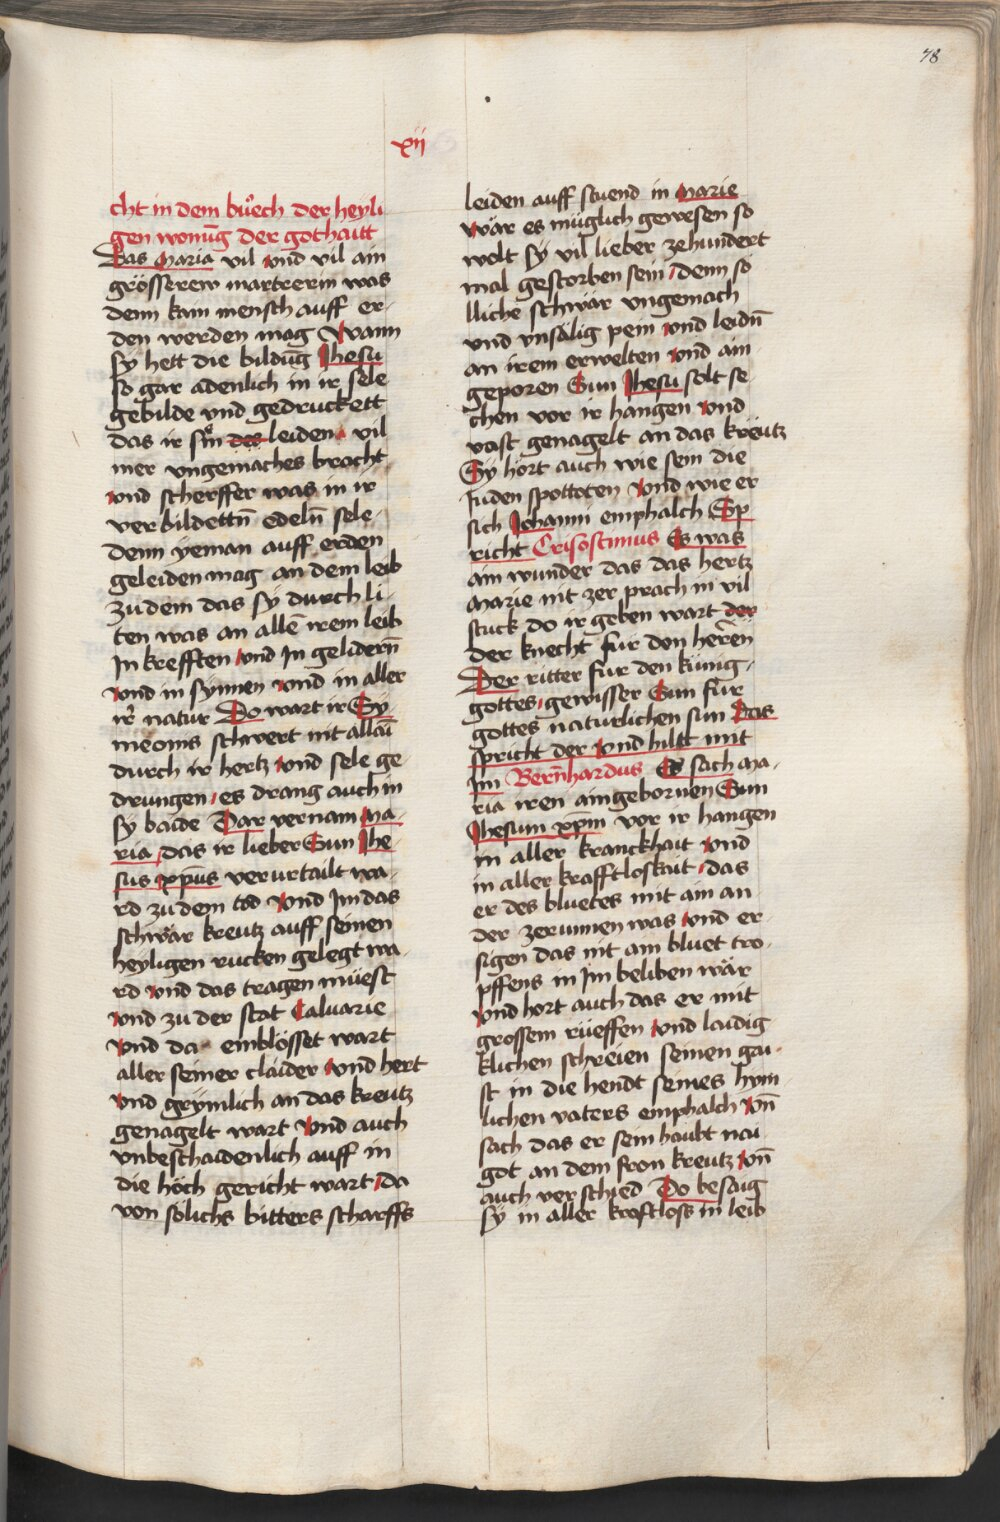 78
xij
cht in dem bůech der heyli
gen wonūg der gothaitt
Das Maria vil vnd vil ain
grösserew martrerin was
denn kain mensch auff er-
den werden mag Wann
sy hett die bildūg Jhesu
so gar adenlich in ir sele
gebilde vnd gedruckett
das ir sin̄ des leiden vil
mer vngemaches brocht
vnd scherffer was in ir
verbildettn̄ edeln̄ sele
denn yeman auff erden
geleiden mag an dem leib
zu dem das sy durch li-
ten was an allē irem leib
Jn krefften vnd Jn gelidern̄
vnd in synnen vnd in aller
ir̄ natur Do wart ir Sy-
meonis schwert nit allain̄
durch ir hertz vnd sele ge-
drungen es drang auch in
sy baide Dar vernam Ma-
ria das ir lieber Sun Jhe-
sus xp̄us verurtailt wa-
rd zu dem tod vnd Jm das
schwär kreutz auff seinen
heyligen rucken gelegt wa-
rd vnd das tragen müest
vnd zu der stat Caluarie
vnd da emblösset wart
aller seiner claider vnd hert
vnd grymlich an das kreutz
genagelt wart vnd auch
vnbeschaidenlich auff in
die höch gericht wart da
von sölichs bitters scharffs
leiden auff stuend in Marie
wär es müglich gewesen so
wolt sy vil lieber zehundert
mal gestorben sein denn so
lliche schwär vngemach
vnd vnsälig pein vnd leidn̄
an irem erwelten vnd ain
geporen Sun Jhesu solt se-
chen vor ir hangen vnd
vast genagelt an das kreutz
Sy hört auch wie sein die
Juden spotteten vnd wie er
sich Johanni emphalch Sp
richt Crisostimus Es was
ain wunder das das hertz
Marie nit zer prach in vil
stuck do ir geben wart der
der knecht für den heren̄
Der ritter für den künig
gottes gewisser Sun für
gottes naturlichen sun Das
spricht der vnd hiltt mit
Jm Bern̄hardus Es sach Ma-
ria iren aingebornen Sun
Jhesum xpm̄ vor ir hangen
in aller kranckhait vnd
in aller krafftloskait das
er des bluetes mit ain an-
der zerunnen was vnd er-
sigen das nit ain bluet tro-
pffens in Jm beliben wär
vnd hort auch das er mit
grossem rüeffen vnd laidig
klichen schreien seinen gai-
st in die hendt seines hym
lichen vaters emphalch vn̄
sach das er sein haubt nai
got an dem fron kreutz vn̄
auch verschied Do besaig
sy in aller kroftloss in leib